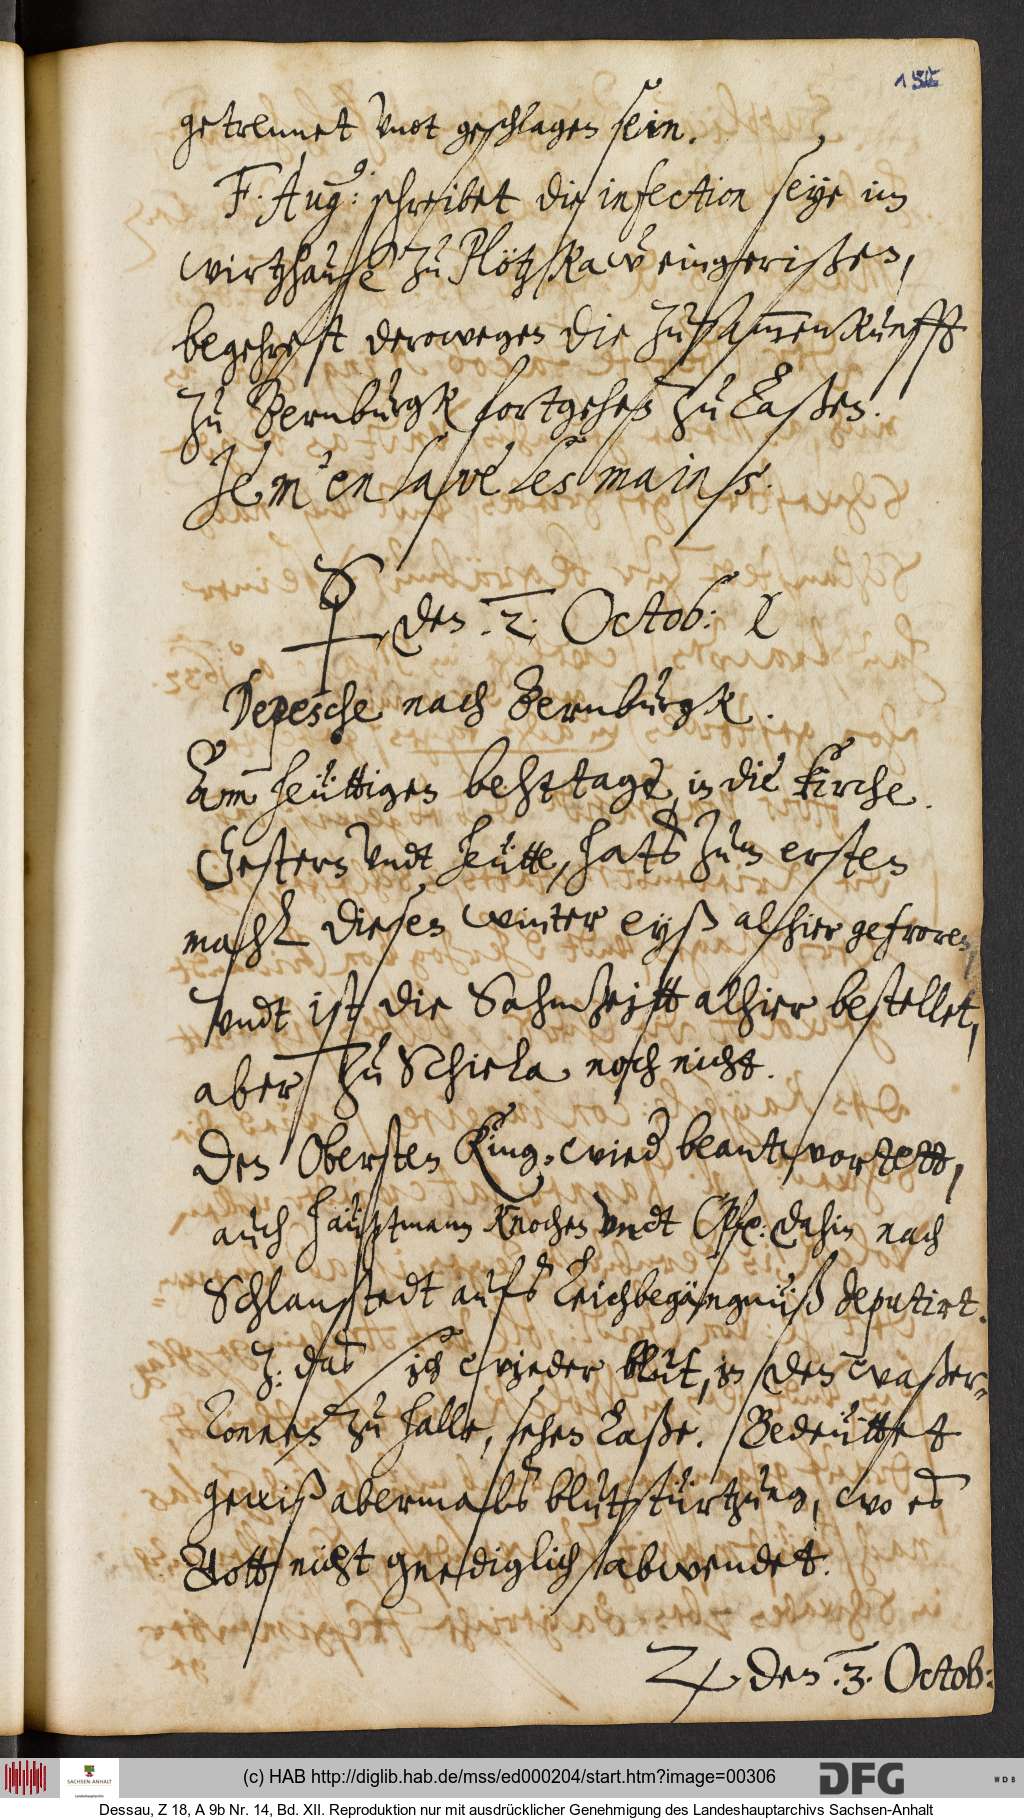 155
getrennet undt geschlagen sein.
F. Aug: schreibet die infection seye im
wirtzhause zu Plötzkaw eingerißen,
begehrest derowegen die zusammenkunfft
zu Bernburgk fortgehen zu laßen.
Je m'en lave les mains.
☿ den .2. Octob:
Depesche nach Bernburgk.
Am heüttigen behttage, in die kirche.
Gestern undt heütte, hats zum ersten
mahl diesen winter eyß alhier gefroren,
undt ist die Sahmzeitt alhier bestellet,
aber zu Schiela noch nicht.
Den Obersten King, wied beantwortett,
auch hauptmann Knochen undt dahin nach
Schlanstedt aufs Leichbegängnüß deputirt.
Z: das sich wieder blut, in den waßer-
konnen zu halle, sehen laße. Bedeüttet
gewiß abermalß blutstürtzung, wo es
Gott nicht gnediglich abwendet.
♃ den .3. Octob:
(c) HAB http://diglib.hab.de/mss/ed000204/start.htm?image=00306
SACHSEN-ANHALT
Landeshauptarchiv
DFG
WDB
Dessau, Z 18, A 9b Nr. 14, Bd. XII. Reproduktion nur mit ausdrücklicher Genehmigung des Landeshauptarchivs Sachsen-Anhalt